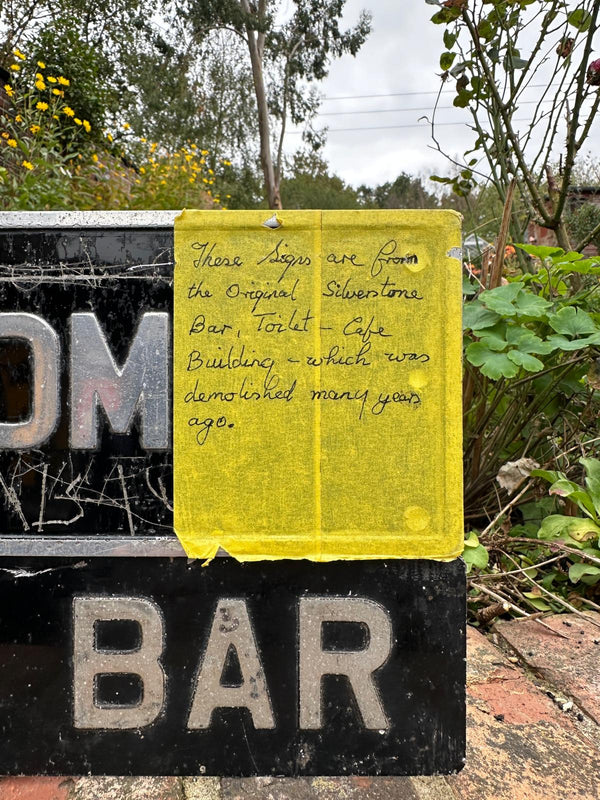 These Signs are from
the Original Silverstone
Bar, Toilet - Cafe
Building - which was
demolished many years
ago.
OM
BAR